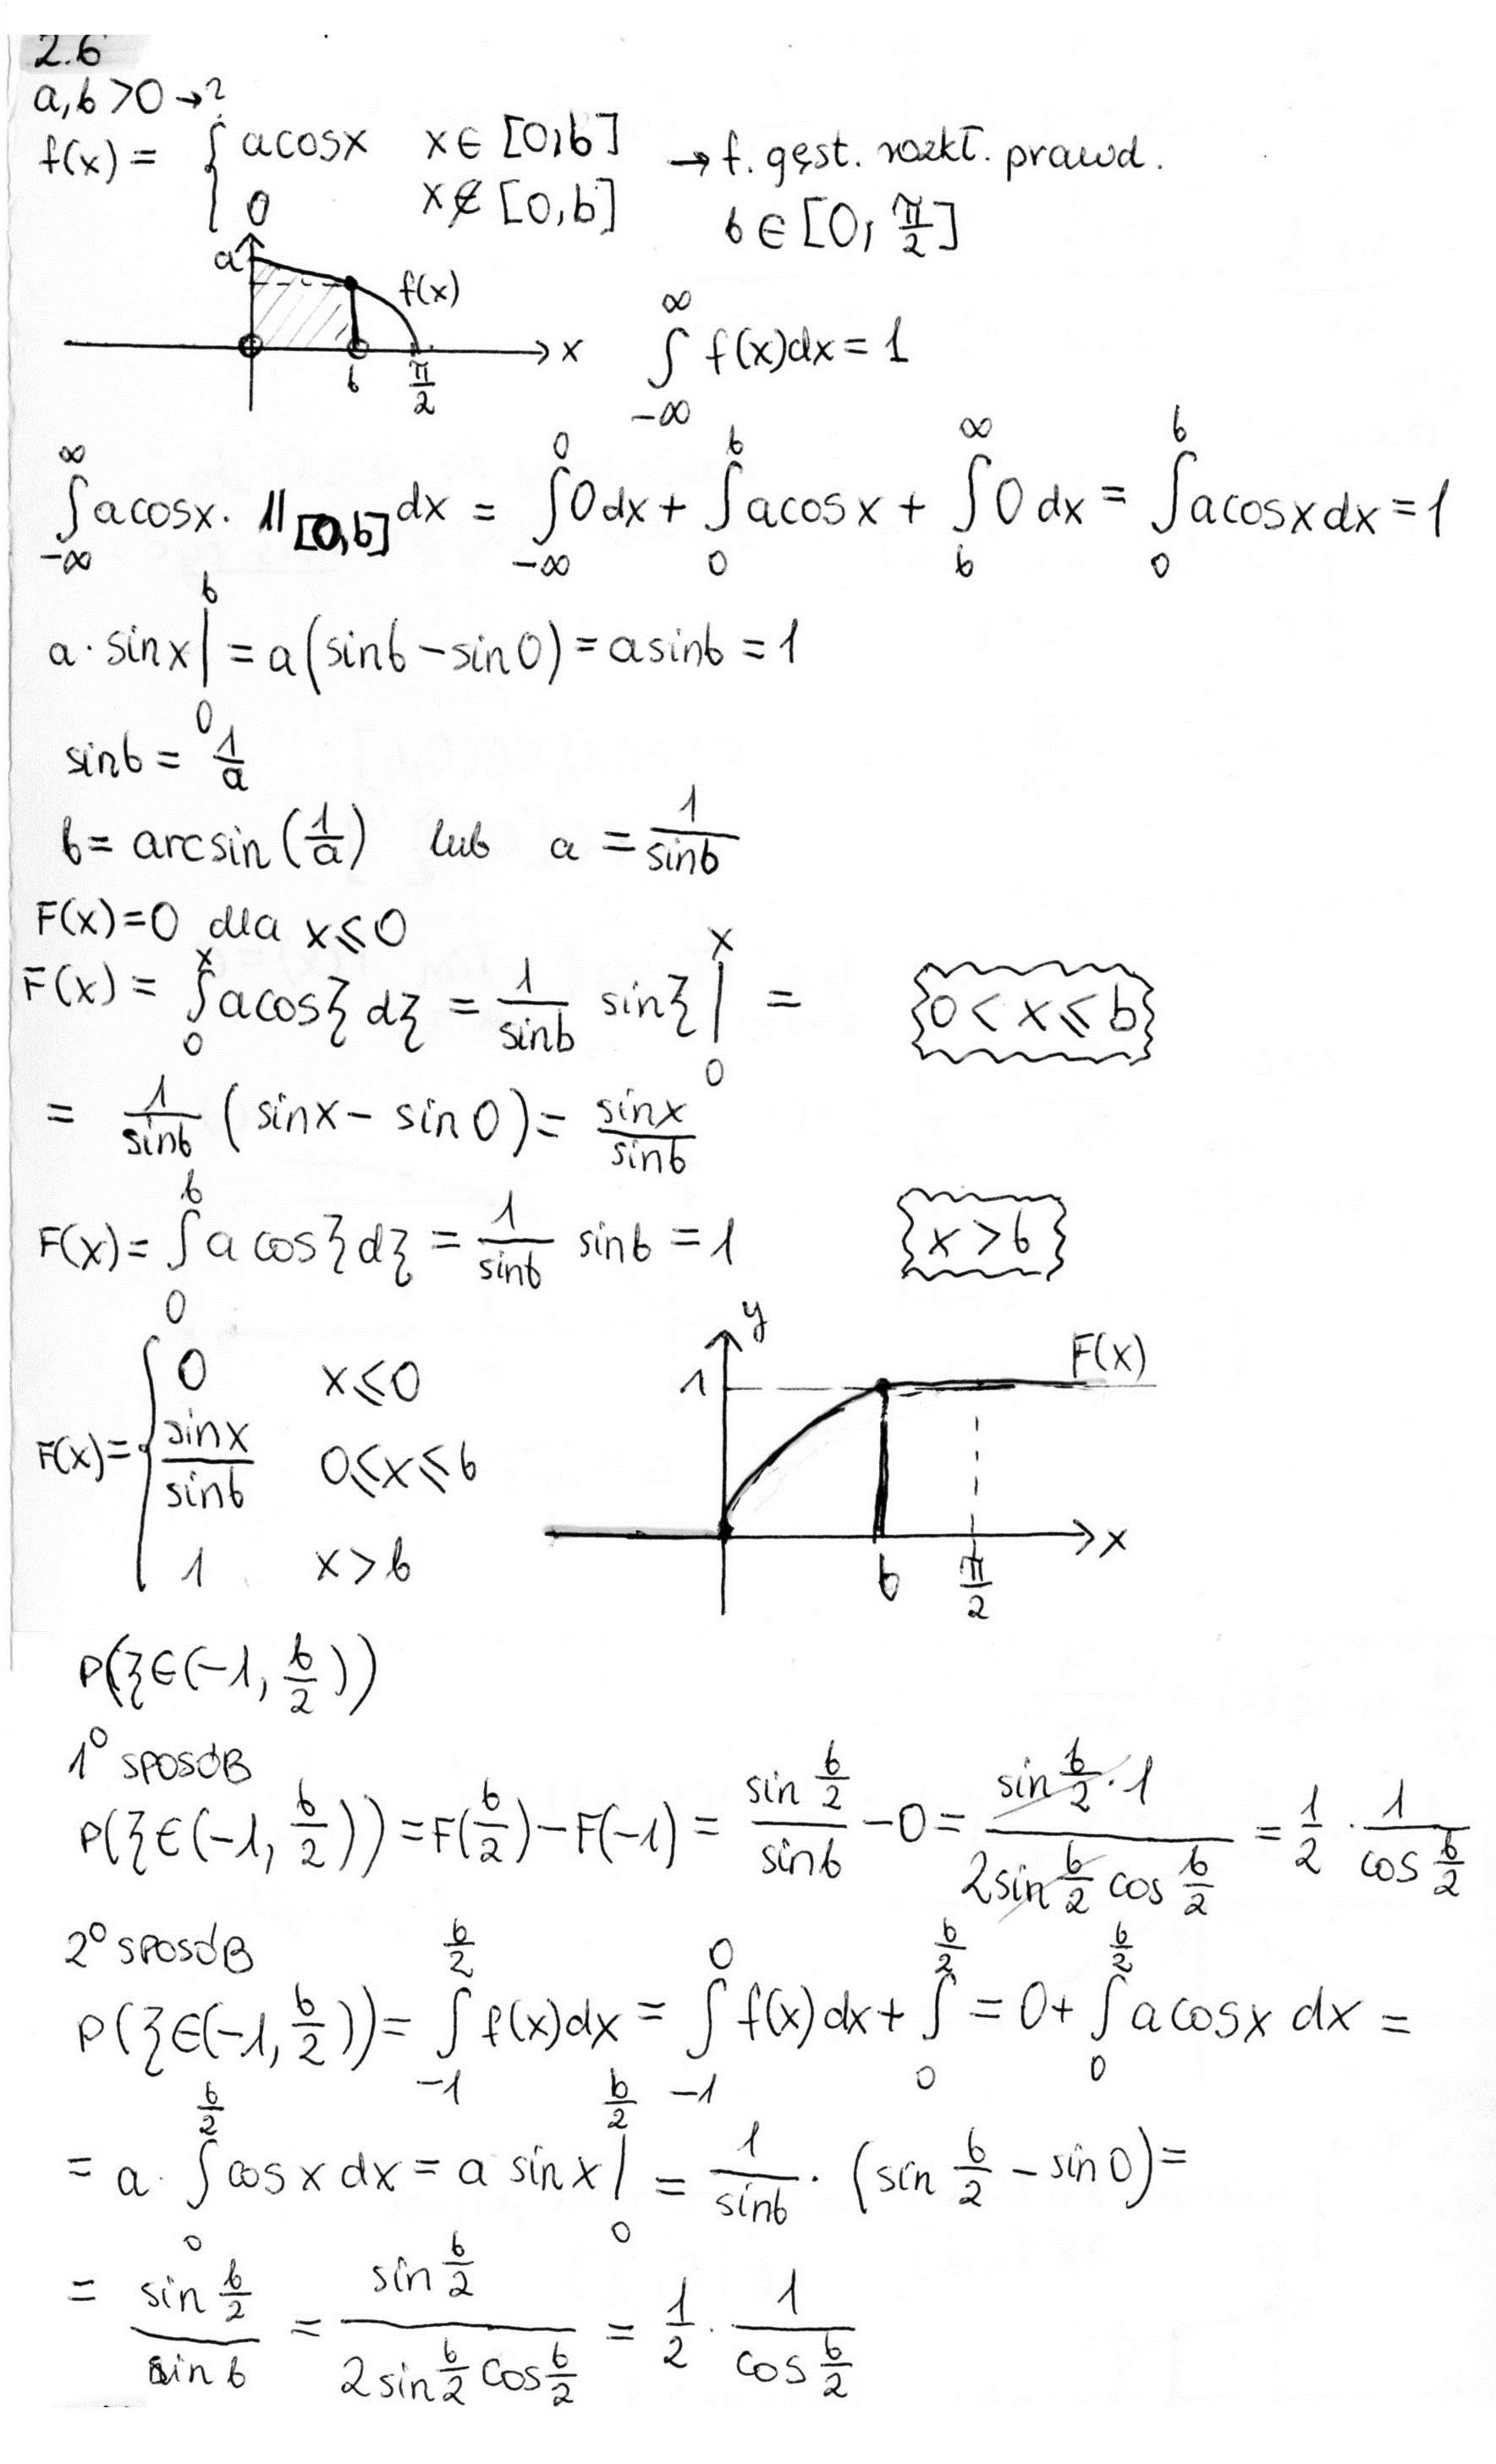 2.6
a,b >0 → ?
f(x) = { acosx x∈ [0,b] → f. gęst. rozkł. prawd.
0 x∉ [0,b] b ∈ [0, π/2]
a f(x) x b π/2
∫_{-∞}^{∞} f(x)dx = 1
∫_{-∞}^{∞} acosx · 1l_{[0,b]} dx = ∫_{-∞}^{0} 0dx + ∫_{0}^{b} acosx + ∫_{b}^{∞} 0 dx = ∫_{0}^{b} acosxdx = 1
a · sinx |_{0}^{b} = a(sinb – sin0) = asinb = 1
sinb = 1/a
b = arcsin (1/a) lub a = 1/sinb
F(x)=0 dla x⩽0
F(x) = ∫_{0}^{x} acosξ dξ = 1/sinb sinξ |_{0}^{x} = 0 < x ⩽ b
= 1/sinb (sinx – sin0) = sinx/sinb
F(x) = ∫_{0}^{b} a cosξdξ = 1/sinb sinb = 1 x > b
F(x) = { 0 x⩽0
sinx/sinb 0⩽x⩽b
1 x > b
y 1 F(x) b π/2 x
P(ξ∈(–1, b/2))
1⁰ SPOSÓB
P(ξ∈(–1, b/2)) = F(b/2) – F(–1) = sin b/2 / sinb – 0 = sin b/2 · 1 / 2sin b/2 cos b/2 = 1/2 · 1/cos b/2
2⁰ SPOSÓB
P(ξ∈(–1, b/2)) = ∫_{-1}^{b/2} f(x)dx = ∫_{-1}^{0} f(x)dx + ∫_{0}^{b/2} = 0 + ∫_{0}^{b/2} acosx dx =
= a · ∫_{0}^{b/2} cosx dx = a sinx |_{0}^{b/2} = 1/sinb · (sin b/2 – sin0) =
= sin b/2 / sinb = sin b/2 / 2sin b/2 cos b/2 = 1/2 · 1/cos b/2